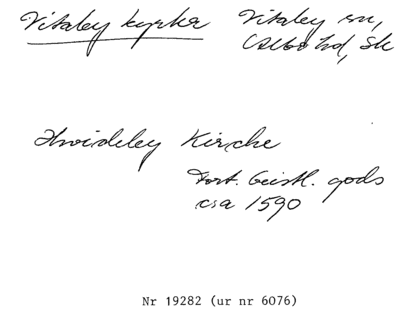 Vitaby kyrka
Vitaby sn,
Albo hd, Sk
Hwideby Kirche
Fort. Geistl. gods
ca 1590
Nr 19282 (ur nr 6076)